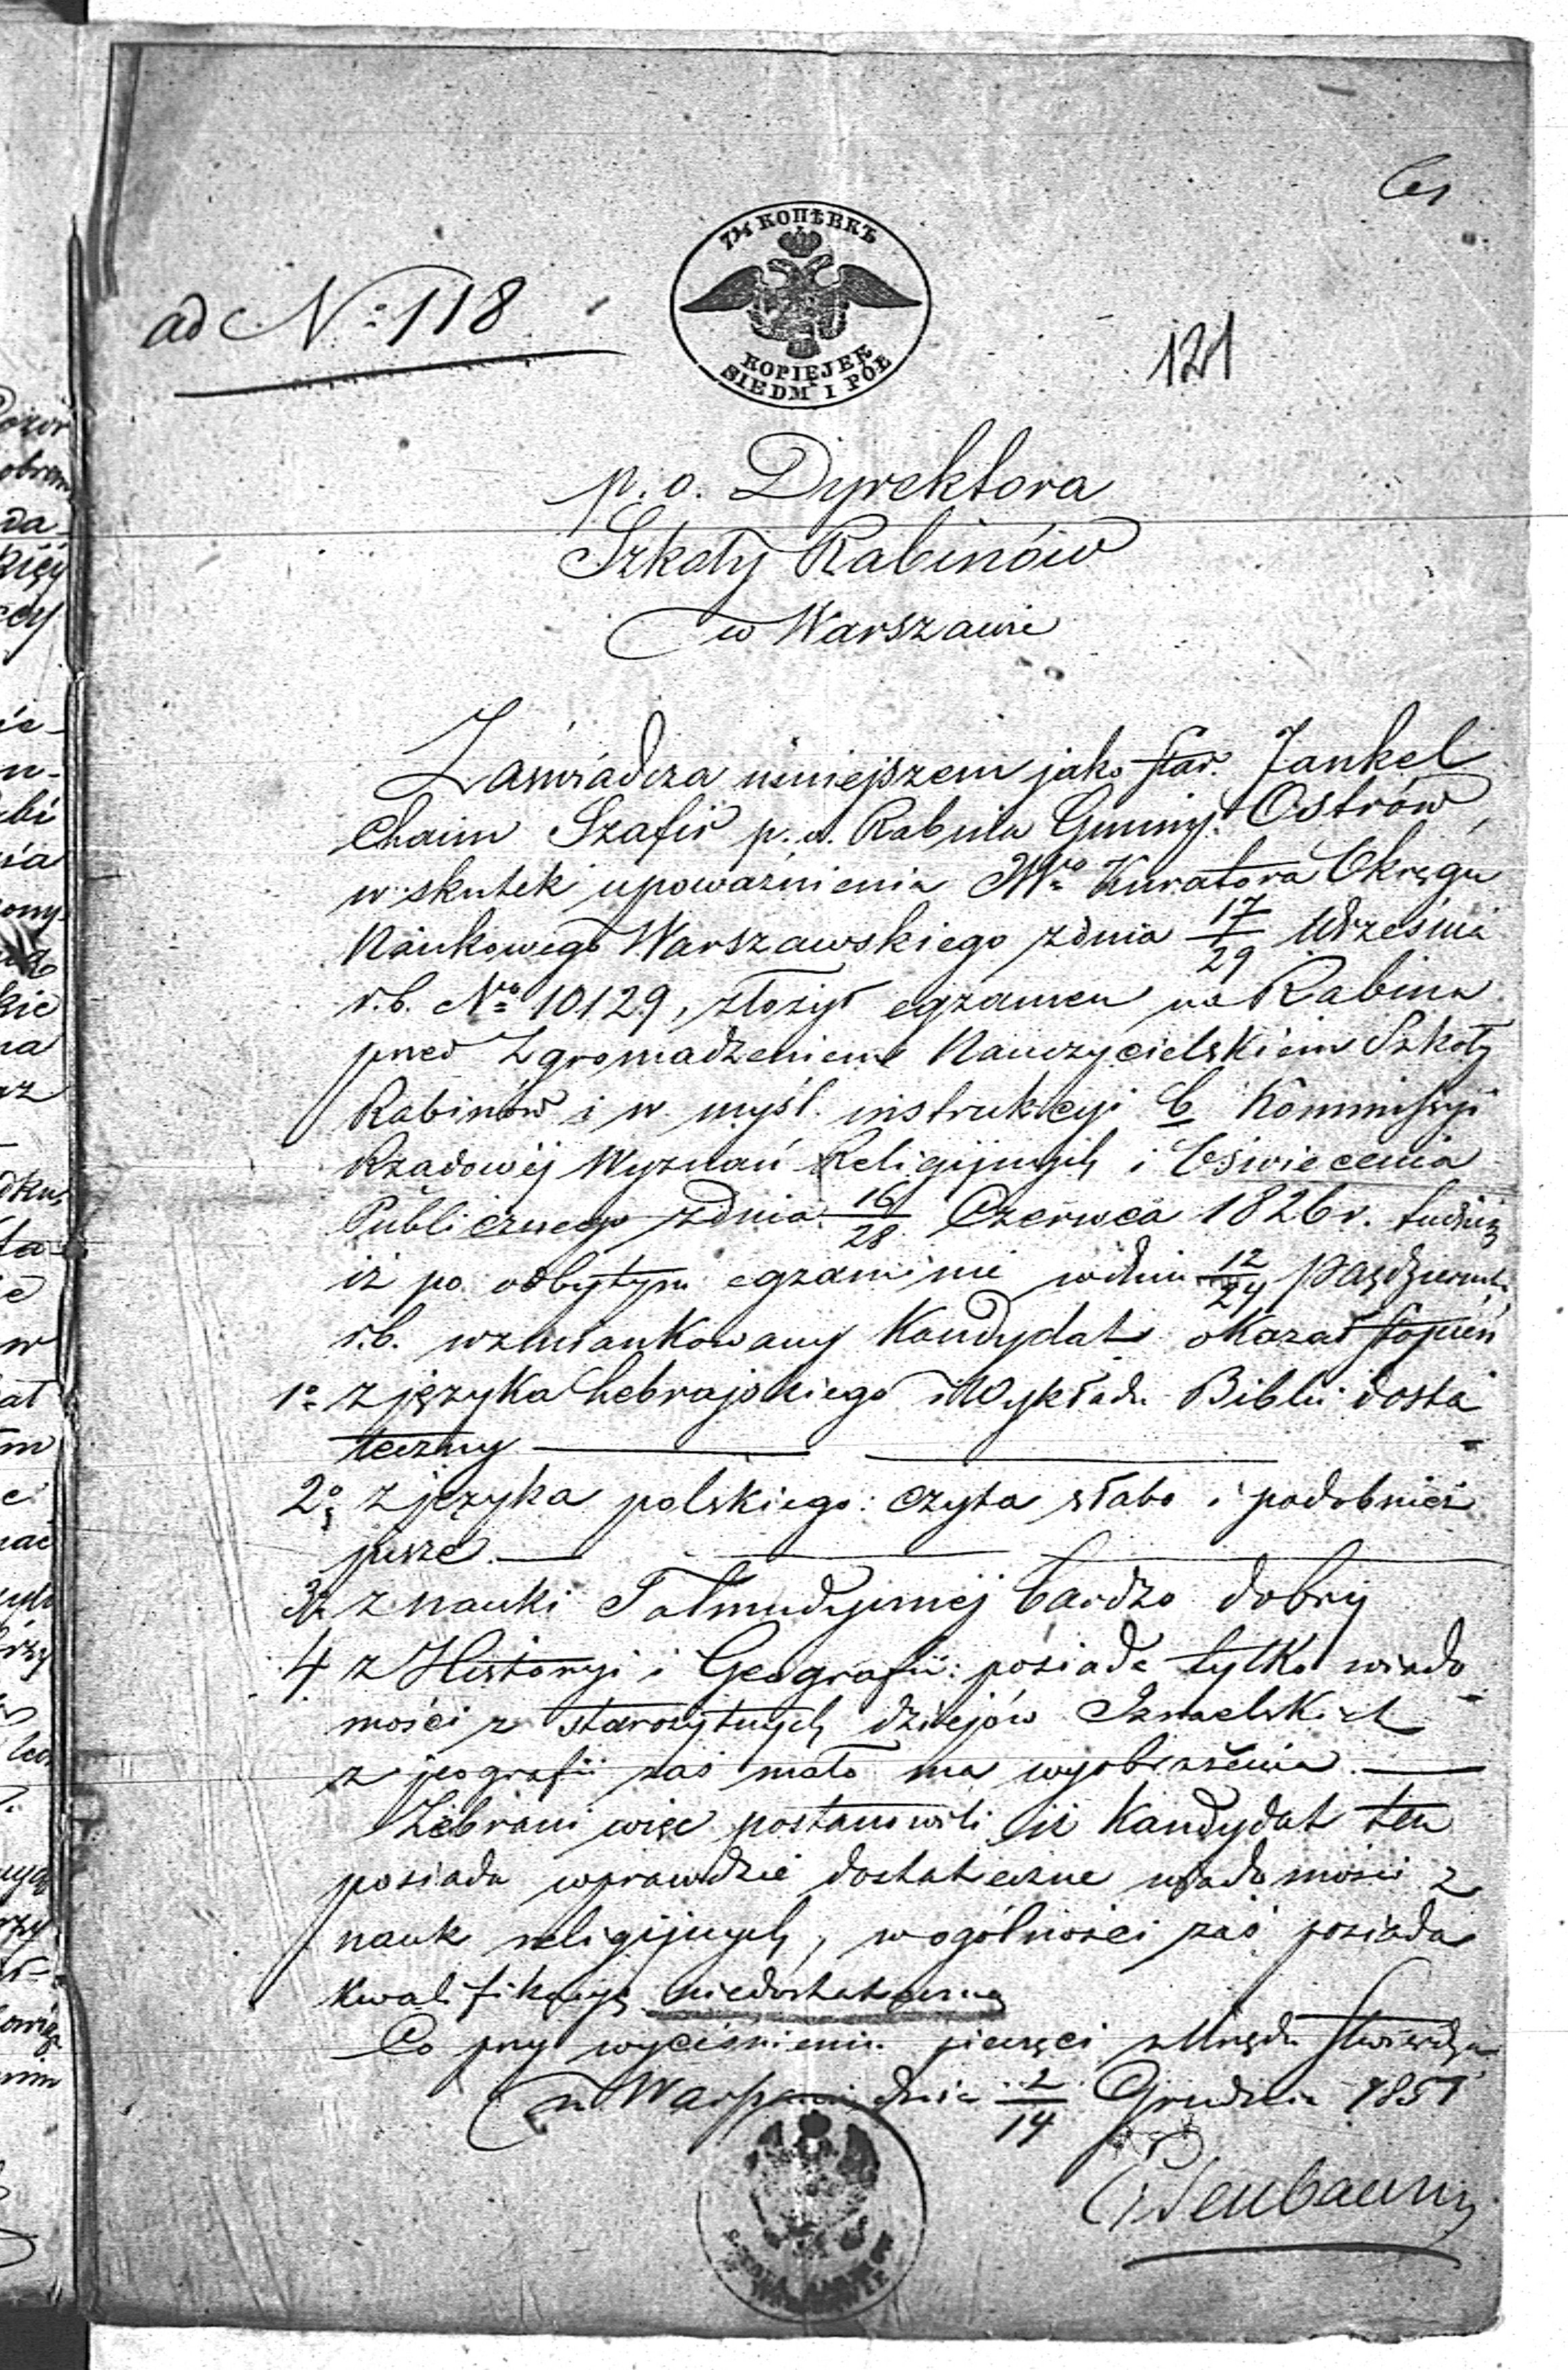 ad No 118
7½ КОПѢЕКЪ
KOPIEJEK
SIEDM I PÓŁ
121
p. o. Dyrektora
Szkoły Rabinów
w Warszawie
Zaświadcza niniejszem jako star. Jankel
Chaim Szafir p. o. Rabina Gminy Ostrów,
w skutek upoważnienia JWgo Kuratora Okręgu
Naukowego Warszawskiego z dnia 17/29 Września
r. b. Nro 10129, złożył egzamen na Rabina
przed Zgromadzeniem Nauczycielskiem Szkoły
Rabinów i w myśl instrukcyi b Kommissyi
Rządowéj Wyznań Religijnych i Oświecenia
Publicznego z dnia 16/28 Czerwca 1826 r. tudzież
iż po odbytym egzaminie w dniu 12/24 Października
r. b. wzmiankowany Kandydat okazał stopień
1o z języka hebrajskiego i wykładu Biblii dosta
teczny
2o z języka polskiego: czyta słabo i podobnież
pisze.
3o z nauki Talmudycznéj bardzo dobry
4 z Historyi i Geografii: posiada tylko wiado
mości z starożytnych dziejów Izraelskich
z jeografii zaś mało ma wyobrażenia.
Zebrani więc postanowili iż Kandydat ten
posiada wprawdzie dostateczne wiadomości z
nauk religijnych, w ogólności zaś posiada
kwalifikacyę niedostateczną
Co przy wyciśnieniu pieczęci z Urzędu stwierdza
w Warszawie dnia 2/14 Grudnia 1851
Neubauer